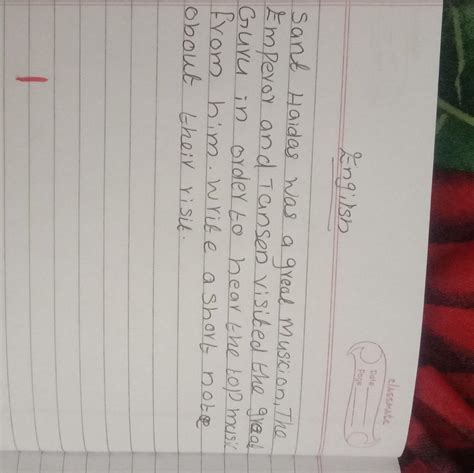 classmate
Date
Page
English
Sant Haidas was a great musicion. The
Emperor and Tansen visited the great
Guru in order to hear the top music
from him. write a short note
about their visit.